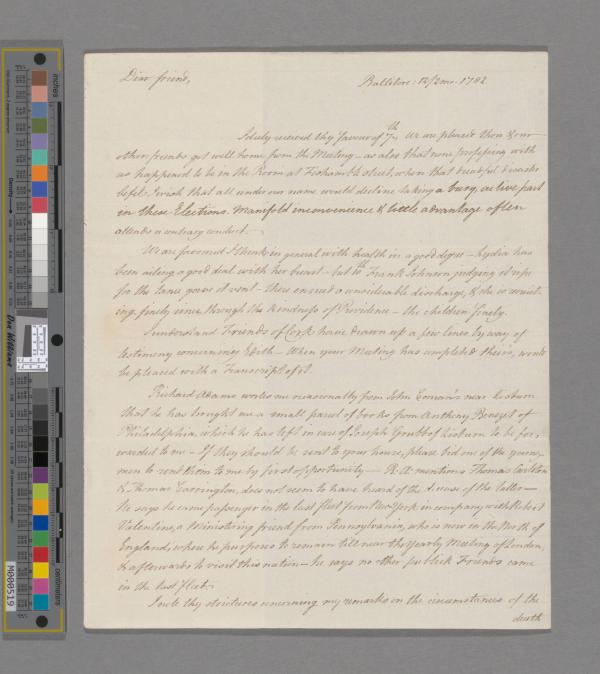 Dear friend,
Ballitore: 12/2mo. 1782.
I duly received thy favour of 7th. We are pleased thou & our
other friends got well home from the Meeting – as also that none professing with
us happened to be in the Room at Fishamble street, when that dreadful disaster
befel. I wish that all under our name would decline taking a busy, or live part
in these Elections. Manifold inconvenience & little advantage often
attends a contrary conduct.
We are favoured I think in general with health in a good degree – Lydia has
been ailing a good deal with her breast – but Frank Johnson judging it ripe
for the lance gave it vent – there ensued a considerable discharge, & she is
finely since, through the kindness of Providence – the children finely.
I understand Friends of Cork have drawn up a few lines by way of
testimony concerning Edith – When your Meeting has compleated theirs, would
be pleased with a Transcript of it.
Richard Adams writes me occasionally from John Conran's near Lisburn
that he has brought me a small parcel of books from Anthony Benezet of
Philadelphia, which he has left in care of Joseph Grubb of Lisburn to be for-
warded to me – If they should be sent to your house, please bid one of the young
men to send them to me by first opportunity – R.A. mentions Thomas Carleton
& Thomas Carrington, does not seem to have heard of the decease of the latter –
He says he came passenger in the last fleet from New York in company with Robert
Valentine, a Ministering friend from Pennsylvania, who is now in the North of
England, where he purposes to remain till near the Yearly Meeting of London,
& afterwards to visit this nation – he says no other publick Friends came
in the last fleet.
I note thy strictures concerning my remarks on the circumstances of the
death
inches
centimeters
Don Williams
Density
M000519